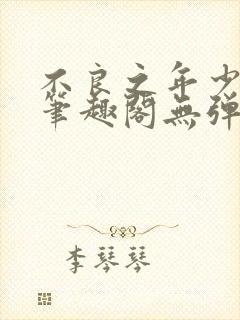 不良之年少
笔趣阁無弹
李琴琴